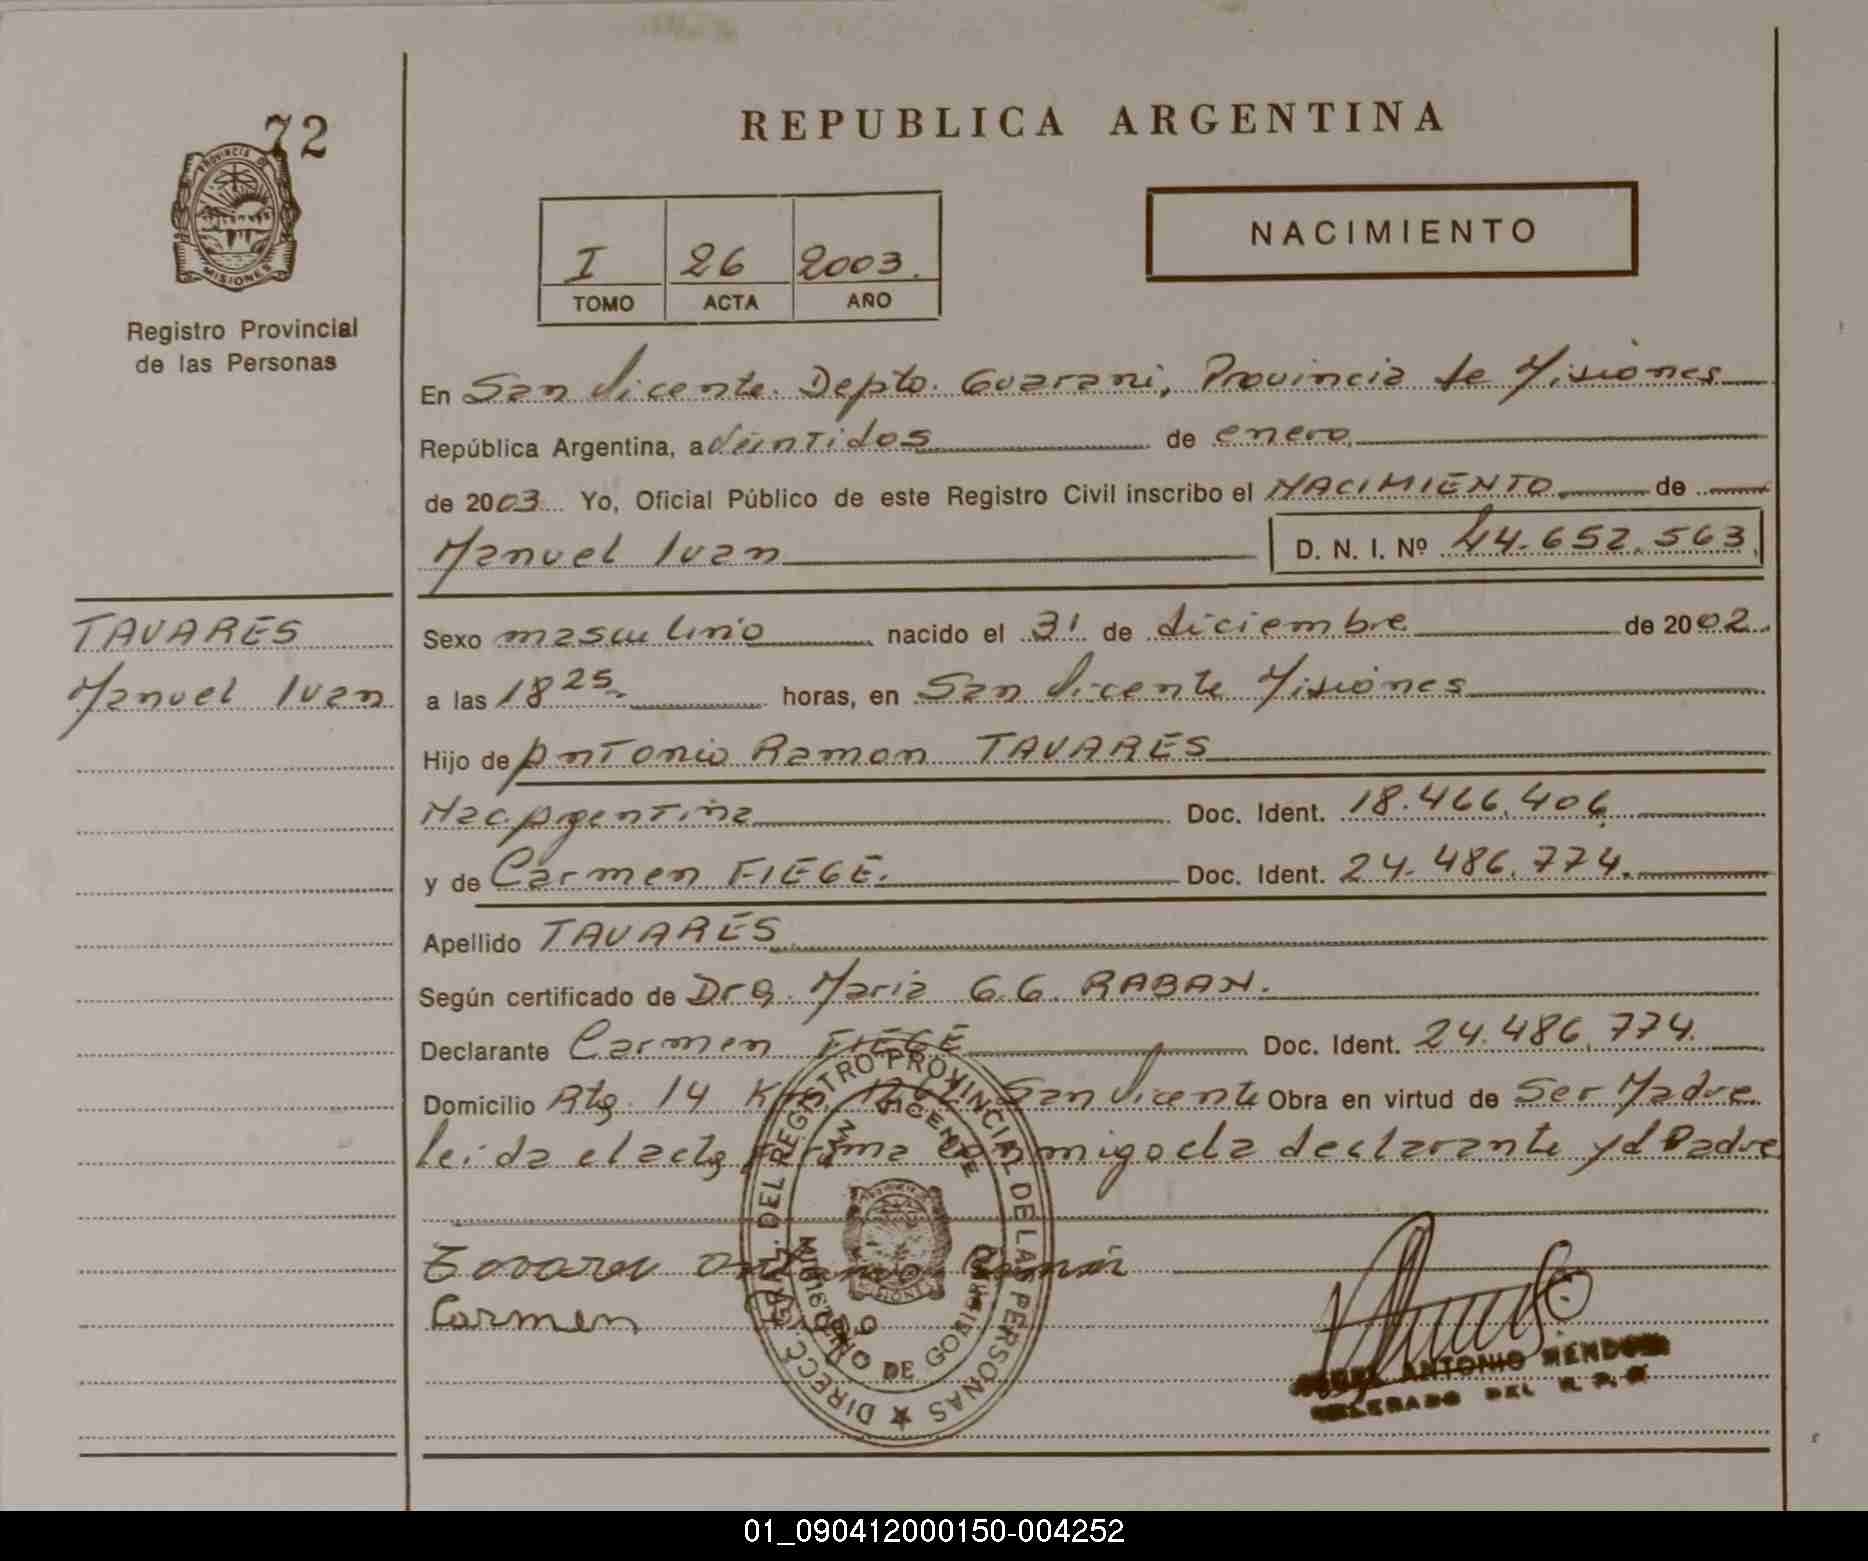 72
PROVINCIA DE
MISIONES
Registro Provincial
de las Personas
REPUBLICA ARGENTINA
NACIMIENTO
I 26 2003.
TOMO ACTA AÑO
En San Vicente. Depto. Guarani, Provincia de Misiones
República Argentina, a veintidos de enero,
de 2003 Yo, Oficial Público de este Registro Civil inscribo el NACIMIENTO de
Manuel Ivan D. N. I. Nº 44.652.563
TAVARES
Manuel Ivan
Sexo masculino nacido el 31 de diciembre de 2002
a las 18 25 horas, en San Vicente Misiones
Hijo de Antonio Ramon TAVARES
Nac. Argentina Doc. Ident. 18.466.406
y de Carmen FIEGE. Doc. Ident. 24.486.774.
Apellido TAVARES
Según certificado de Dra. Maria G.G. RABAN.
Declarante Carmen FIEGE Doc. Ident. 24.486.774.
Domicilio Rta. 14 Km. San Vicente Obra en virtud de Ser Madre
leida el acta firma conmigo la declarante y el Padre
Tavares Antonio Ramón
Carmen
DIRECC. GRAL. DEL REGISTRO PROVINCIAL DE LAS PERSONAS
SAN VICENTE
MINISTERIO DE GOBIERNO
MISIONES
ANTONIO MENDOZA
DEL R. P. P.
01_090412000150-004252